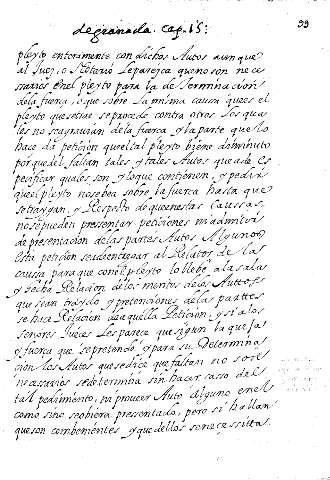 de granada. cap. 15:
99
pleyto enteramente con dichos Autos aunque
al Juez, o Notario le parezca que no son nece
sarios en el pleyto para la determinacion
de la fuerça, o que sobre la misma causa que es el
pleyto que se trae se procede contra otros los qua
les no se agrauian de la fuerça, y la parte que lo
hace da petiçion que el tal pleyto biene diminuto
porque del faltan tales, y tales Autos que a de es
pecificar quales son, y lo que contienen, y pedir
que el pleyto no se bea sobre la fuerça hasta que
se traygan, y Respeto de que en estas caussas,
no se pueden presentar petiçiones ni admitir
de presentacion de las partes Autos Algunos
Esta petiçion se a de entregar al Relator de la
caussa para que con el pleyto lo llebe a la sala
y hecha Relaçion de los meritos de los Auttos
que se an traydo y pretenciones de las parttes
se haze Relaçion de aquella Petiçion, y si a los
señores Jueces les parece que sigun la quexa
y fuerça que se pretende y para su Determina
cion los Autos que se dice que faltan no son
necessarios se determina sin hacer casso del
tal pedimiento, ni proueer Auto alguno en el
como si no se obiera pressentado, pero si hallan
que son combenientes y que dellos se necessitta